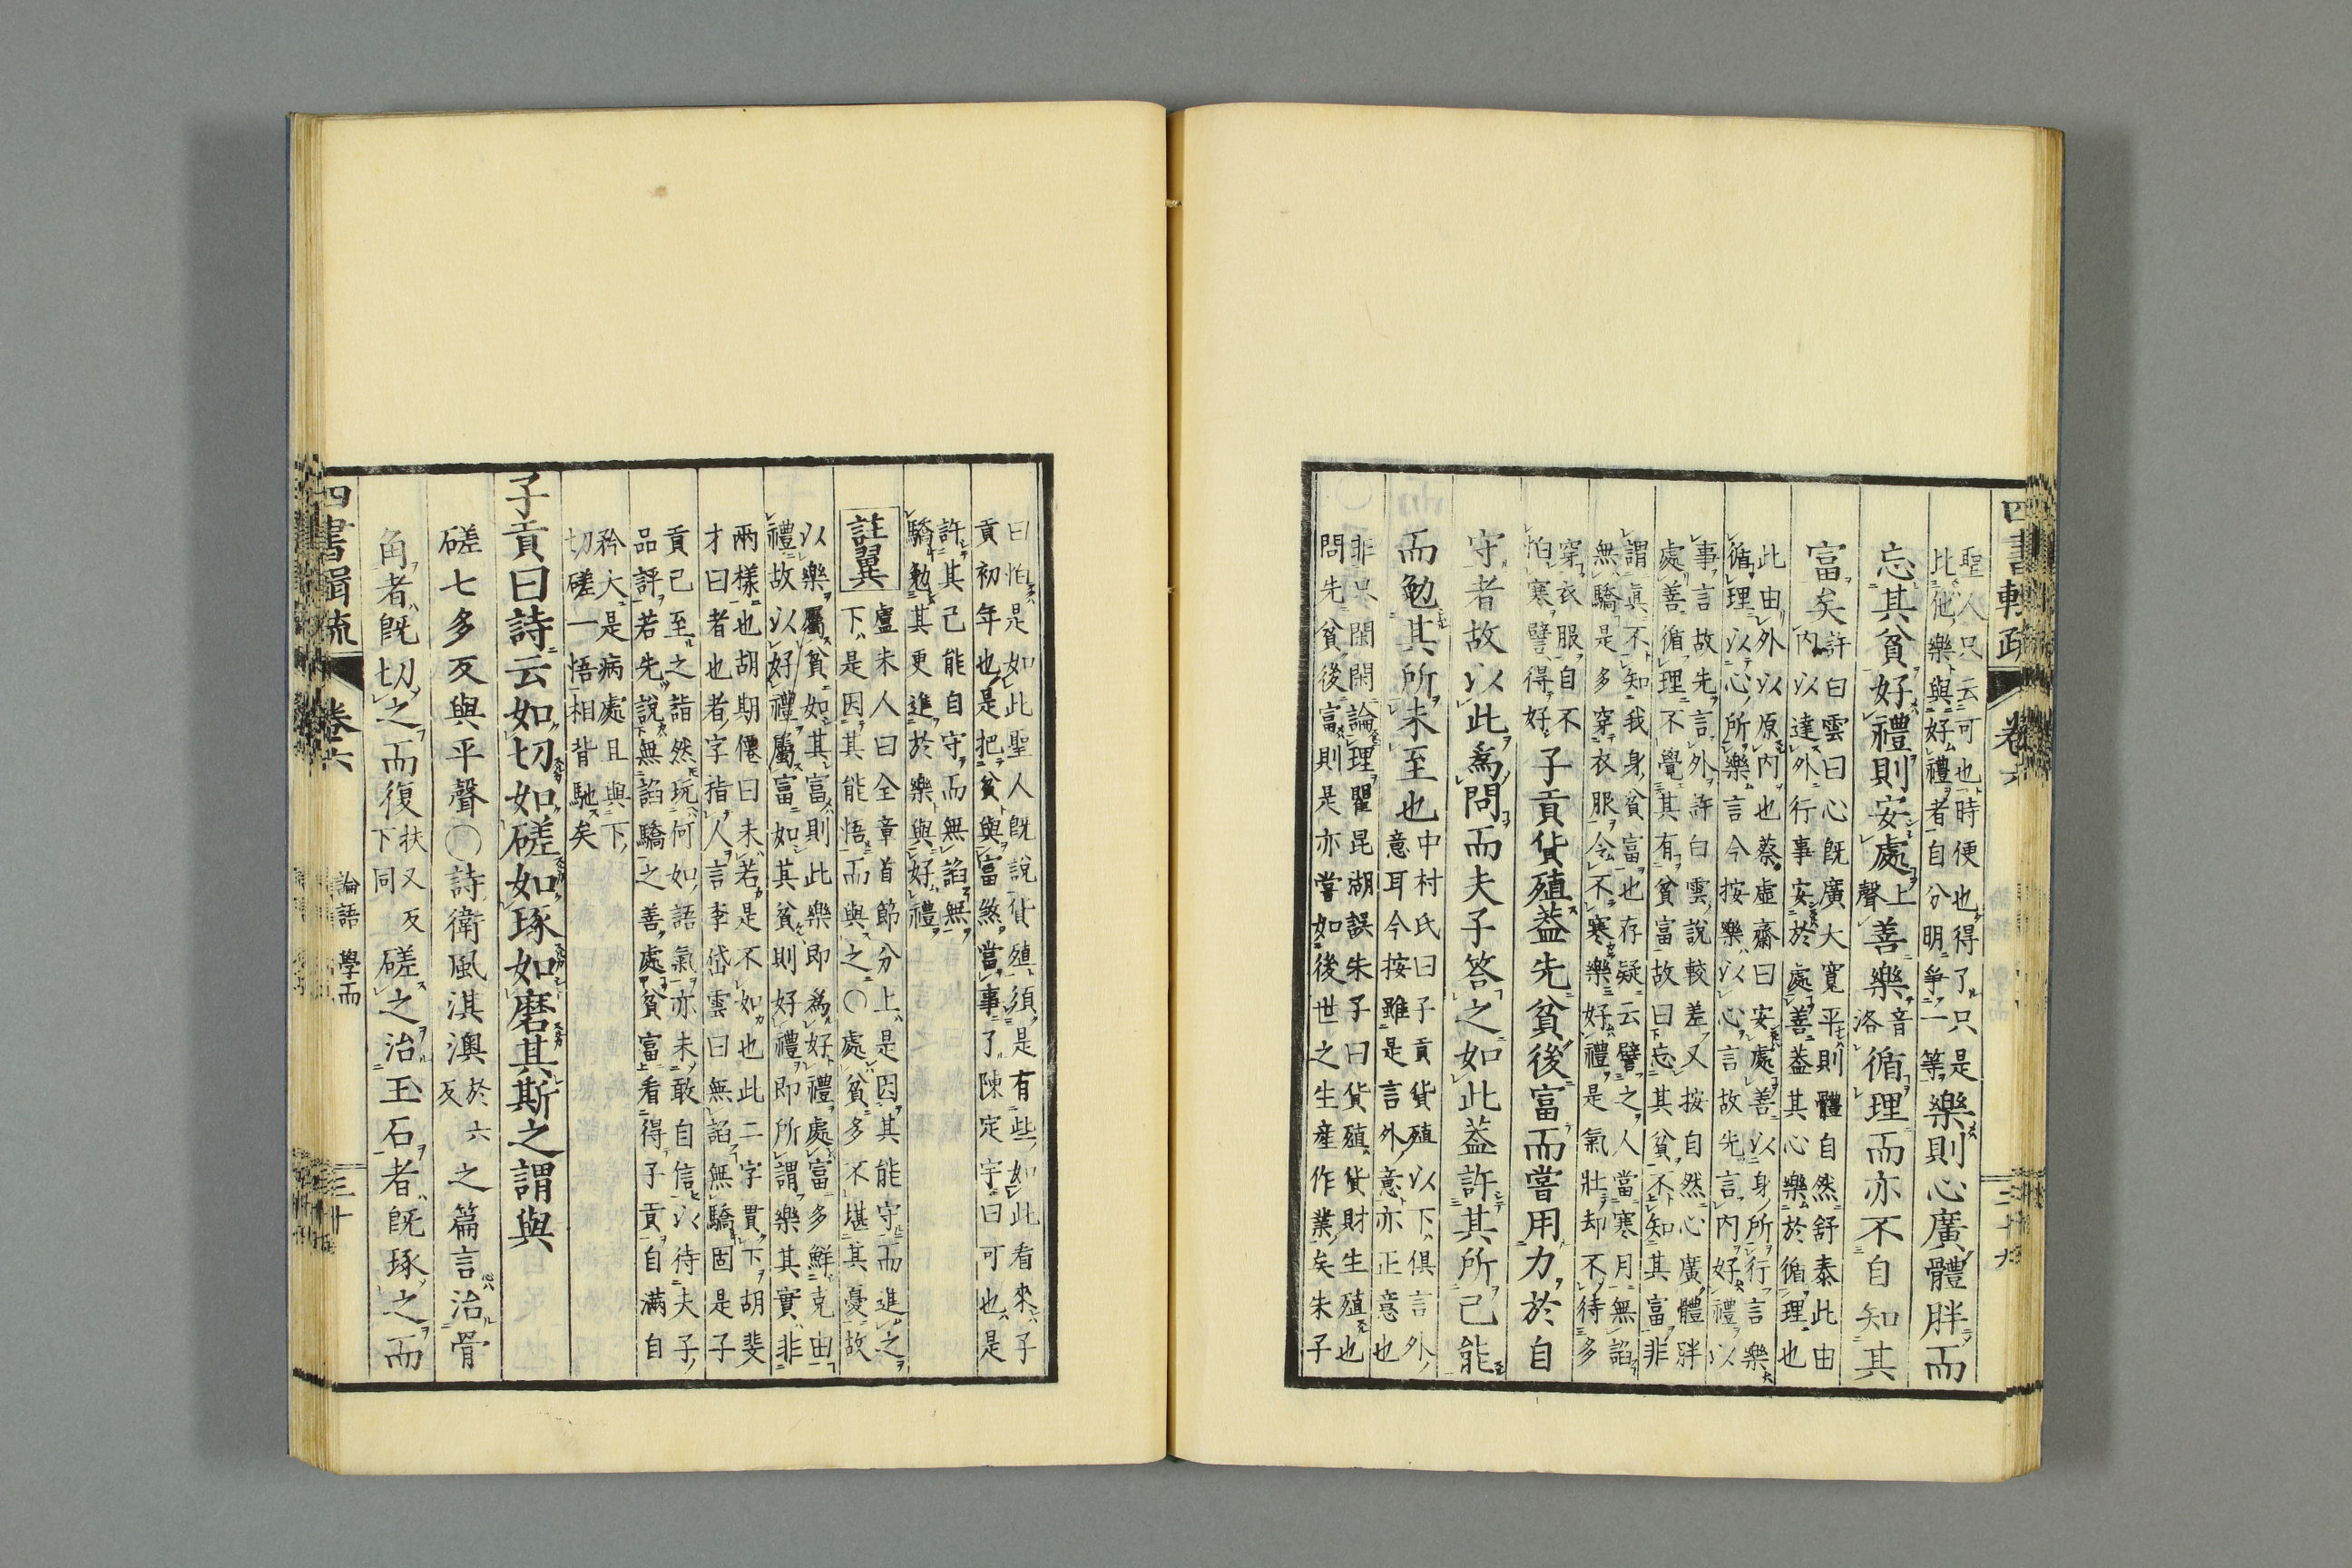 四書輯疏
卷六
二十九
聖人只云可也時便也得了只是
此他樂與好禮者自分明爭一等
樂則心廣體胖而
忘其貧好禮則安處
上
聲
善樂
音
洛
循理而亦不自知其
富矣
許白雲曰心既廣大寬平則體自然舒泰此由
内以達外行事安於處善蓋其心樂於循理也
此由外以原内也蔡虛齋曰安處善以身所行言樂
循理以心所樂言今按樂以心言故先言内好禮以
事言故先言外許白雲說較差又按自然心廣體胖
處善循理不覺其有貧富故曰忘其貧不知其富非
謂眞不知我身貧富也存疑云譬之人當寒月無諂
無驕是多穿衣服令不寒樂好禮是氣壯却不待多
穿衣服自不
怕寒譬得好
子貢貨殖蓋先貧後富而嘗用力於自
守者故以此爲問而夫子答之如此蓋許其所已能
而勉其所未至也
中村氏曰子貢貨殖以下俱言外
意耳今按雖是言外意亦正意也
非果閑閑論理瞿昆湖誤朱子曰貨殖貨財生殖也
問先貧後富則是亦嘗如後世之生產作業矣朱子
曰怕是如此聖人既說貨殖須是有些如此看來子
貢初年也是把貧與富煞當事了陳定宇曰可也是
許其已能自守而無諂無
驕勉其更進於樂與好禮
註翼
盧未人曰全章首節分上是因其能守而進之
下是因其能悟而與之〇處貧多不堪其憂故
以樂屬貧如其富則此樂即爲好禮處富多鮮克由
禮故以好禮屬富如其貧則好禮即所謂樂其實非
兩樣也胡期僊曰未若是不如也此二字貫下胡斐
才曰者也者字指人言李岱雲曰無諂無驕固是子
貢已至之詣然玩何如語氣亦未敢自信以待夫子
品評若先說無諂驕之善處貧富看得子貢自滿自
矜大是病處且與下
切磋一悟相背馳矣
子貢曰詩云如切如磋如琢如磨其斯之謂與
磋七多反與平聲〇詩衛風淇澳
於六
反
之篇言治骨
角者既切之而復
扶又反
下同
磋之治玉石者既琢之而
四書輯疏
卷六
論語 學而
三十